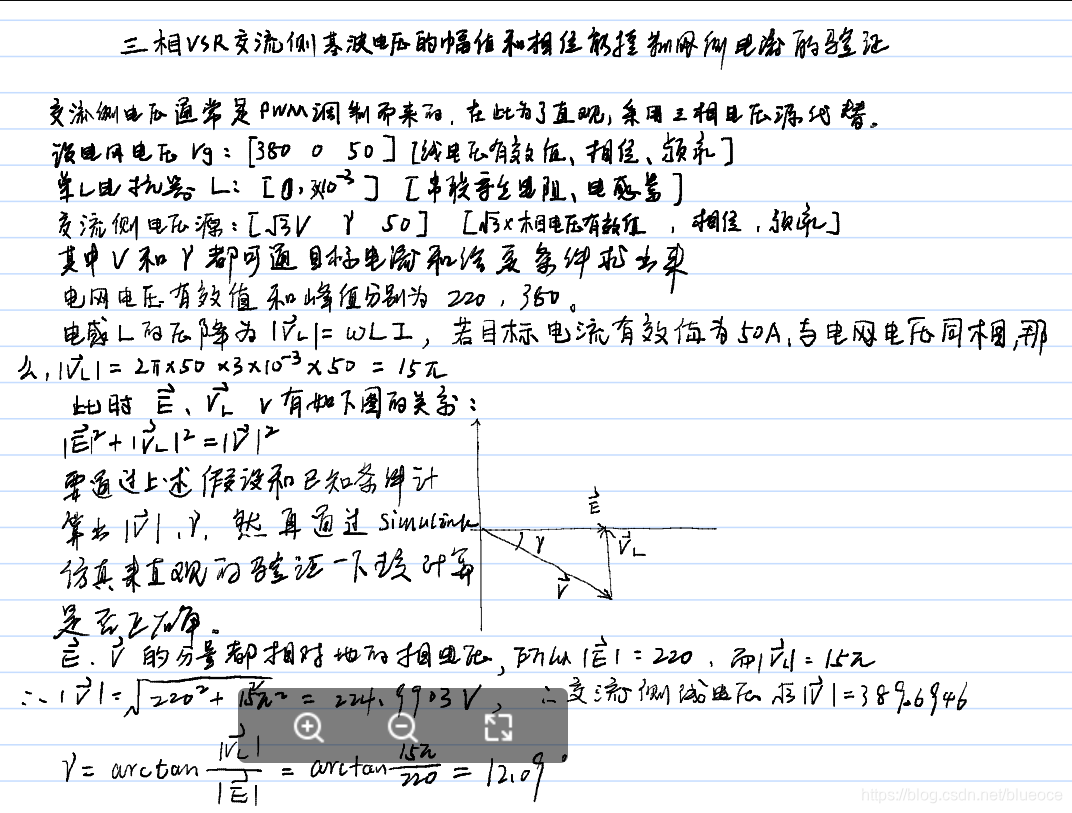 三相VSR交流侧基波电压的幅值和相位能控制网侧电流的验证
交流侧电压通常是PWM调制而来的,在此为了直观,采用三相电压源代替。
设电网电压Vg:[380 0 50] [线电压有效值、相位、频率]
单L电抗器L:[0,3x10⁻³] [串联寄生电阻、电感量]
交流侧电压源:[√3V γ 50] [√3x相电压有效值,相位,频率]
其中V和γ都可通目标电流和给定条件求出来
电网电压有效值和峰值分别为220,380。
电感L的压降为|V⃗L|=ωLI,若目标电流有效值为50A,与电网电压同相,那
么,|V⃗L|=2π×50×3×10⁻³×50=15π
此时E⃗、V⃗L V有如下图的关系:
|E⃗|²+|V⃗L|²=|V⃗|²
要通过上述假设和已知条件计
算出|V⃗|、γ,然再通过simulink
仿真来直观的验证一下我计算
是否正确。
E⃗
γ
V⃗L
V⃗
E⃗、V⃗的分量都相对地的相电压,所以|E⃗|=220,而|V⃗L|=15π
∴|V⃗|=√220²+15π² = 224.9903V, ∴交流侧线电压√3|V⃗|=389.6946
γ=arctan |V⃗L|/|E⃗| = arctan 15π/220 = 12.09°
https://blog.csdn.net/blueoce